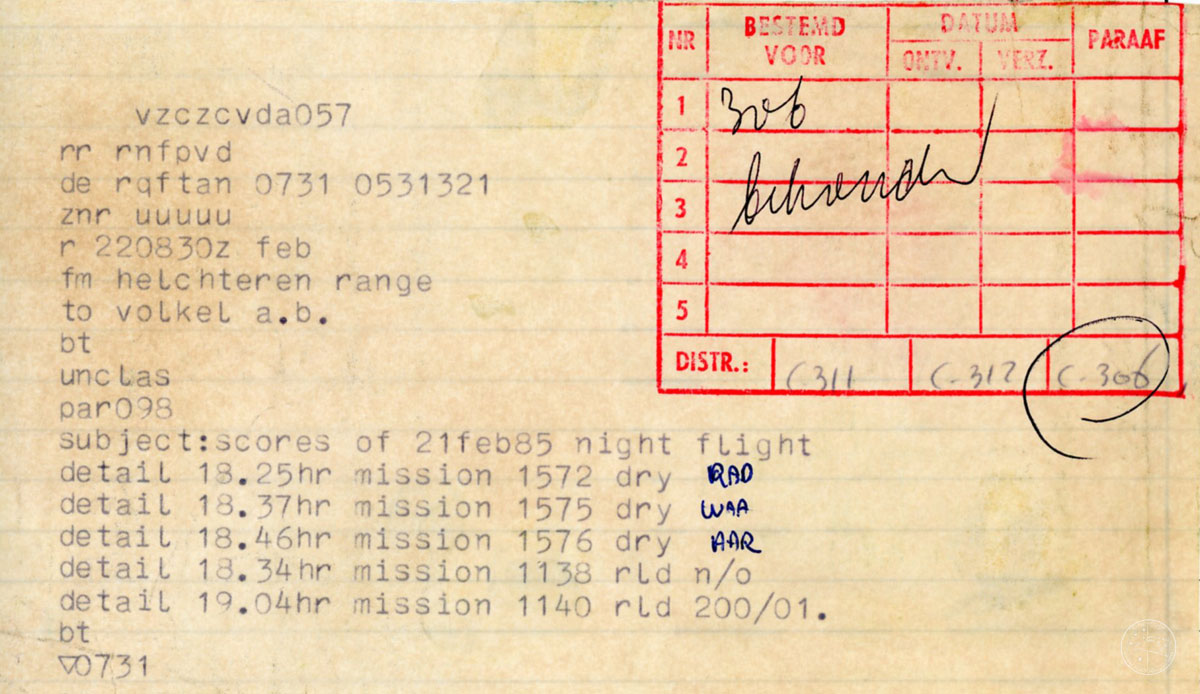 NR BESTEMD VOOR DATUM ONTV. VERZ. PARAAF
1 306
2
3
4
5
DISTR.: C-311 C-312 C-306
vzczcvda057
rr rnfpvd
de rqftan 0731 0531321
znr uuuuu
r 220830z feb
fm helchteren range
to volkel a.b.
bt
unclas
par098
subject:scores of 21feb85 night flight
detail 18.25hr mission 1572 dry RAD
detail 18.37hr mission 1575 dry WAA
detail 18.46hr mission 1576 dry AAR
detail 18.34hr mission 1138 rld n/o
detail 19.04hr mission 1140 rld 200/01.
bt
▽0731